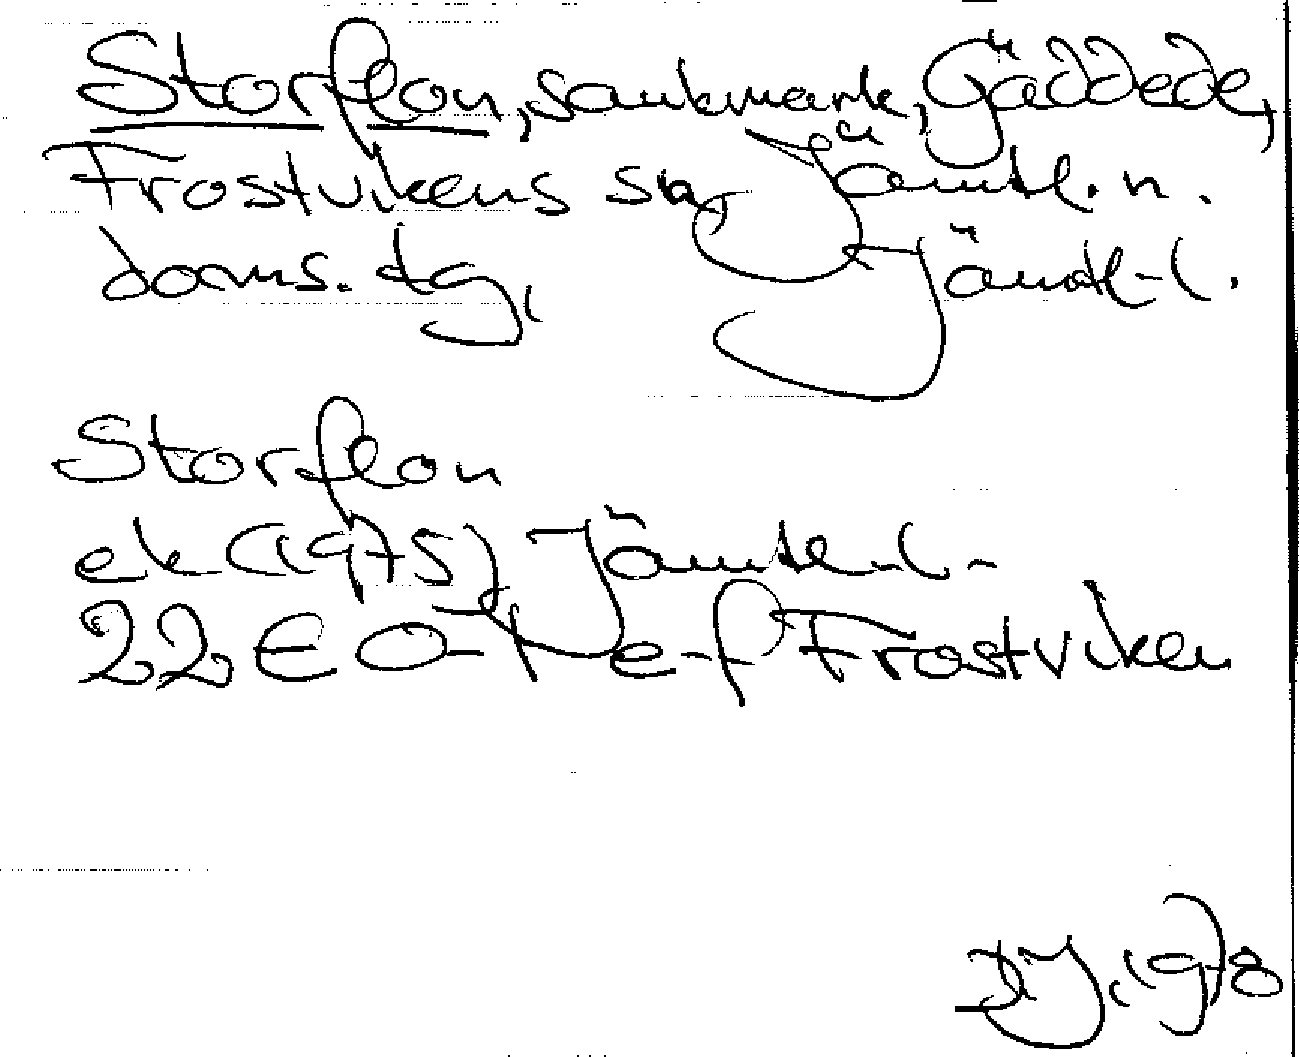 Storflon, sankmark, Gäddede,
Frostvikens sn, Jämtl. n.
doms. tg, Jämtl. l.
Storflon
ek (1975) Jämtl. l.
22E 0-1 e-f Frostviken
1978